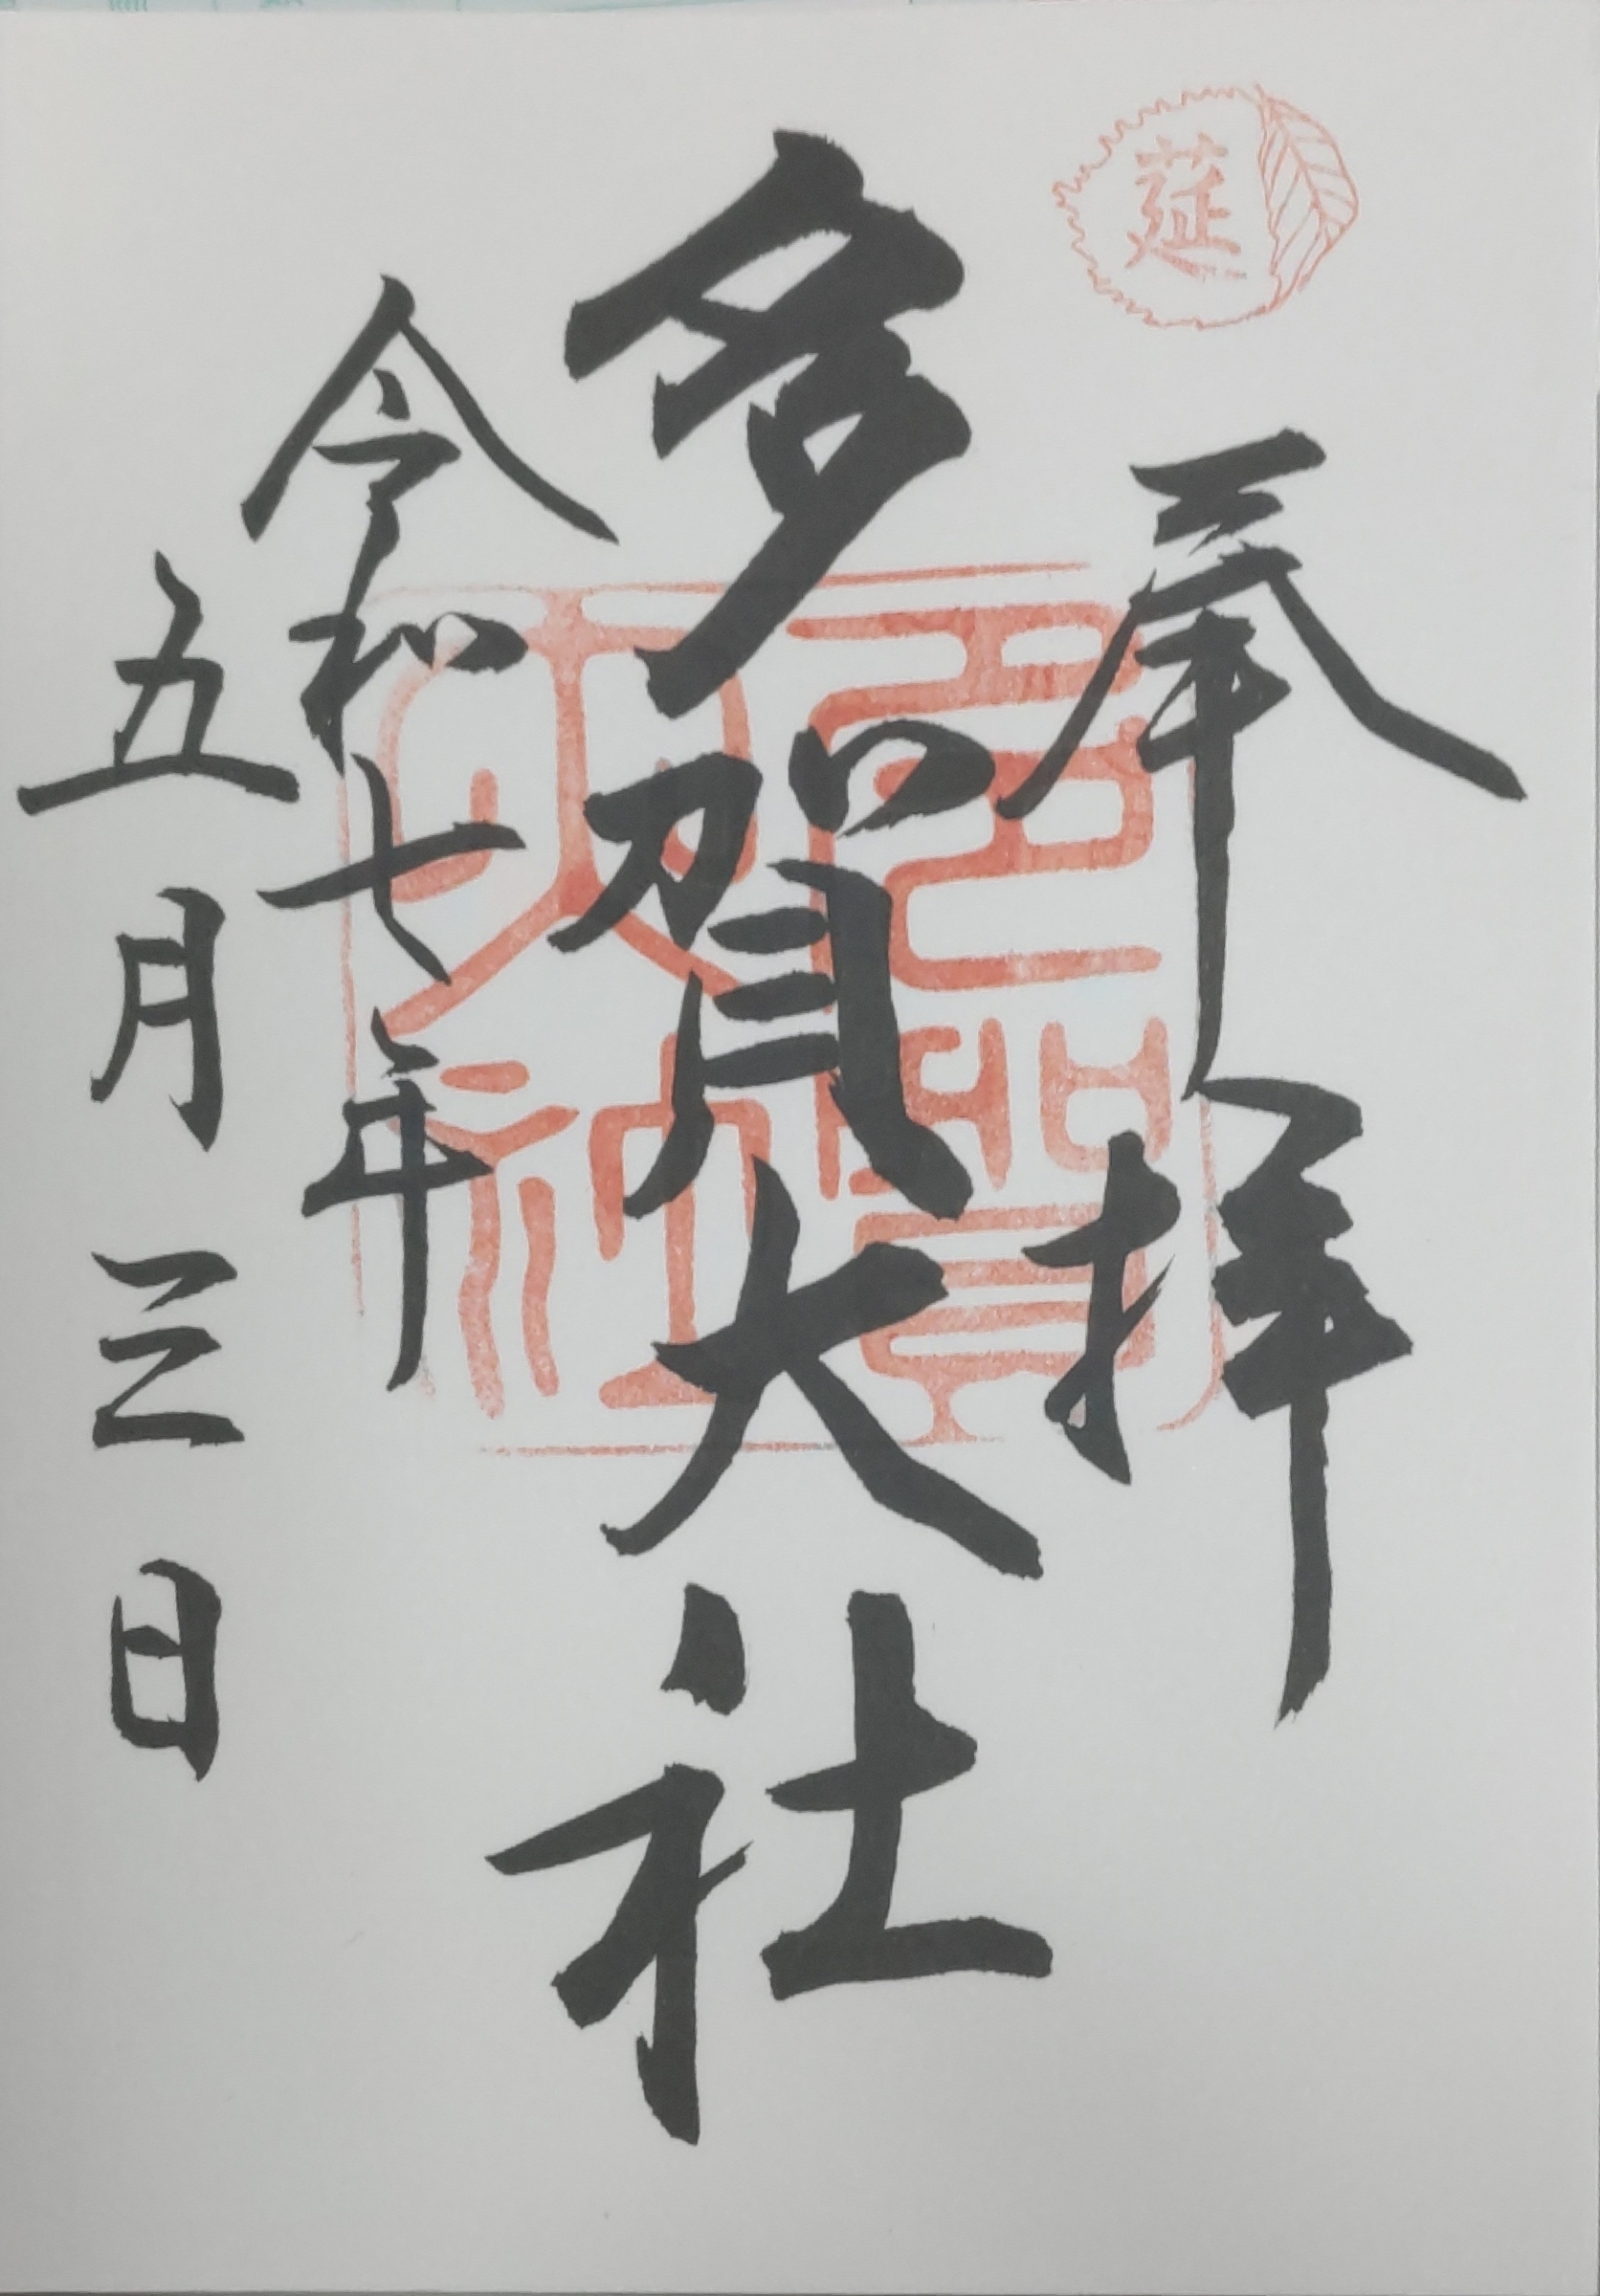 莚
奉拝
多賀大社
多賀大社
令和七年
五月三日